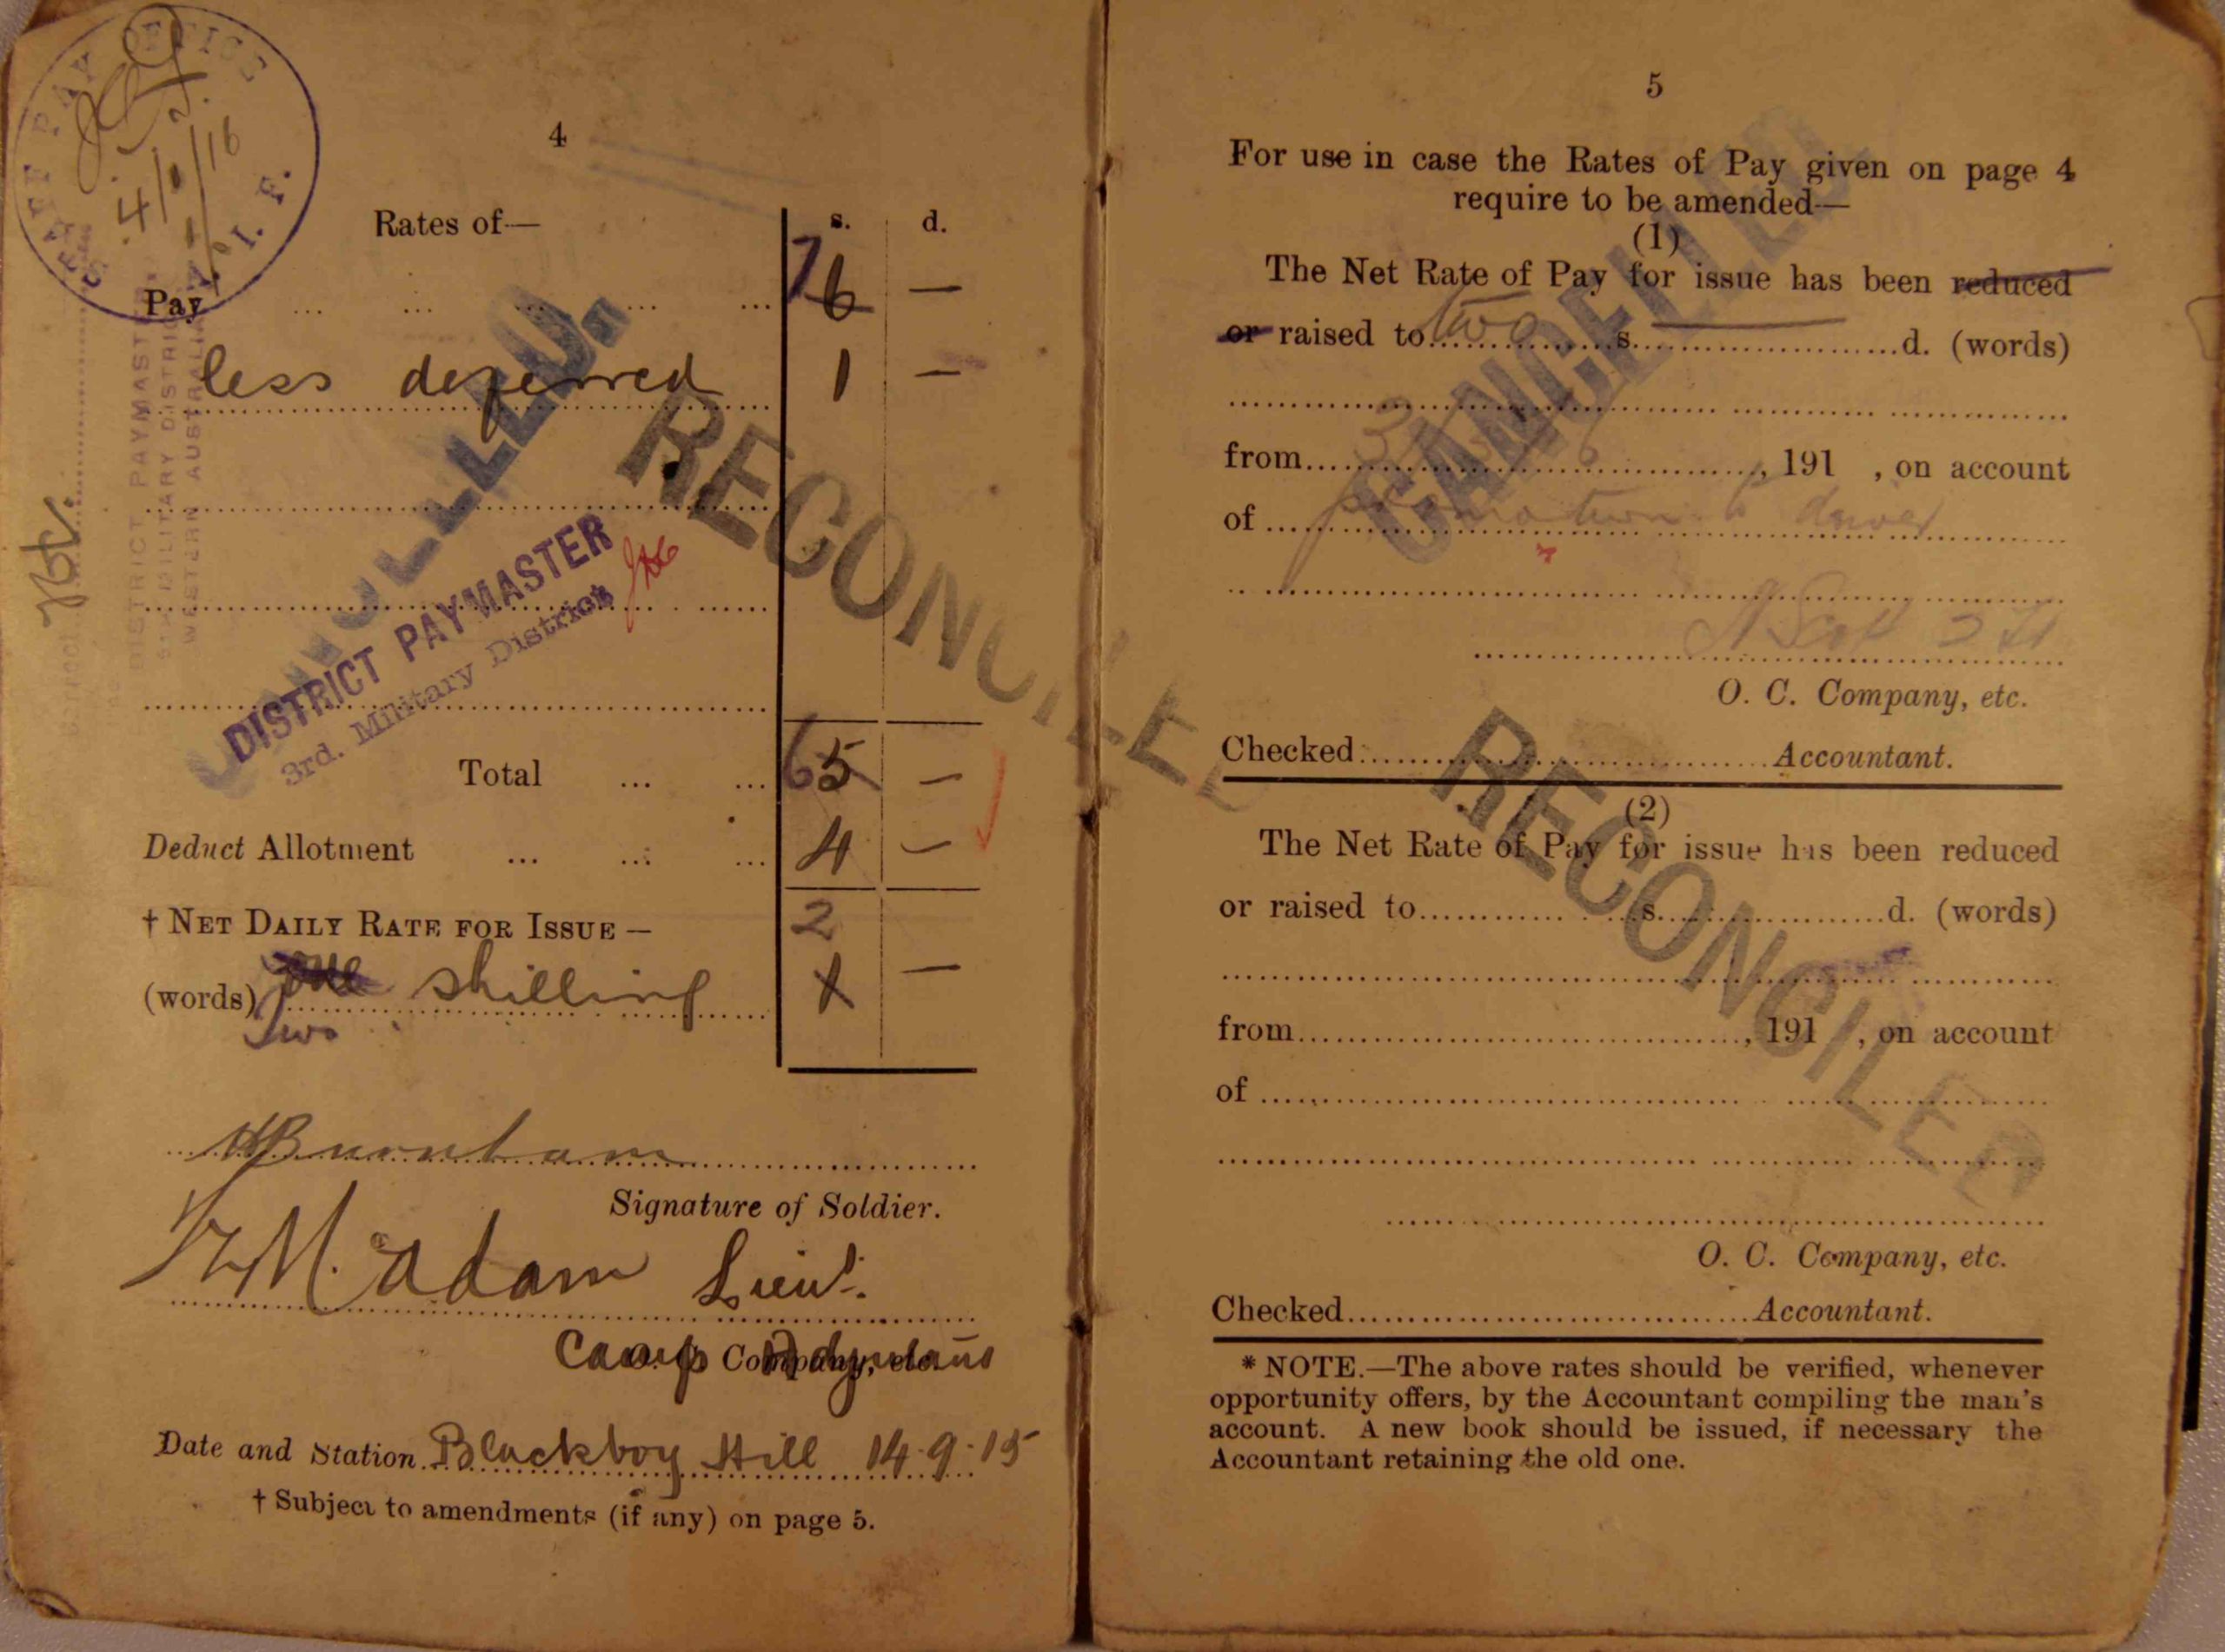 STAFF PAY OFFICE
A. I. F.
4
Rates of—
s. d.
Pay ... ... ... ... ... 7 6 —
less deferred 1 —
CANCELLED.
RECONCILED
DISTRICT PAYMASTER
5TH MILITARY DISTRICT
WESTERN AUSTRALIA
DISTRICT PAYMASTER
3rd. Military District
Total ... ... 6 5 —
Deduct Allotment ... ... ... 4 —
† NET DAILY RATE FOR ISSUE — 2
(words) one shilling 1 —
Two
Burnham
Signature of Soldier.
Adam Lieut.
Camp Adjutant
Company, etc.
Date and Station Blackboy Hill 14.9.15
† Subject to amendments (if any) on page 5.
5
For use in case the Rates of Pay given on page 4
require to be amended—
(1)
The Net Rate of Pay for issue has been reduced
or raised to two s. — d. (words)
CANCELLED
from , 191 , on account
of promotion to driver
O. C. Company, etc.
Checked Accountant.
RECONCILED
(2)
The Net Rate of Pay for issue has been reduced
or raised to s. d. (words)
from , 191 , on account
of
O. C. Company, etc.
Checked Accountant.
* NOTE.—The above rates should be verified, whenever
opportunity offers, by the Accountant compiling the man's
account. A new book should be issued, if necessary the
Accountant retaining the old one.